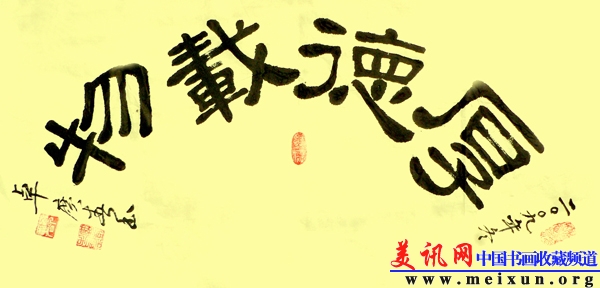 厚德載物
二〇〇九年冬
美讯网 中国书画收藏频道
www.meixun.org